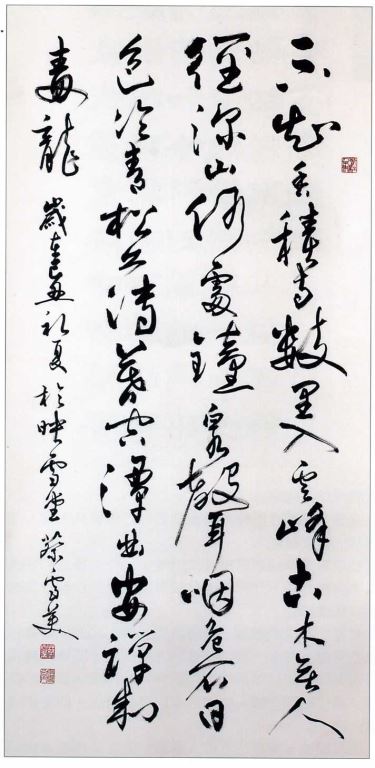 不知香積寺數里入雲峰古木無人
徑深山何處鐘泉聲咽危石日
色冷青松薄暮空潭曲安禪制
毒龍 歲丑初夏於映雪堂 雪美